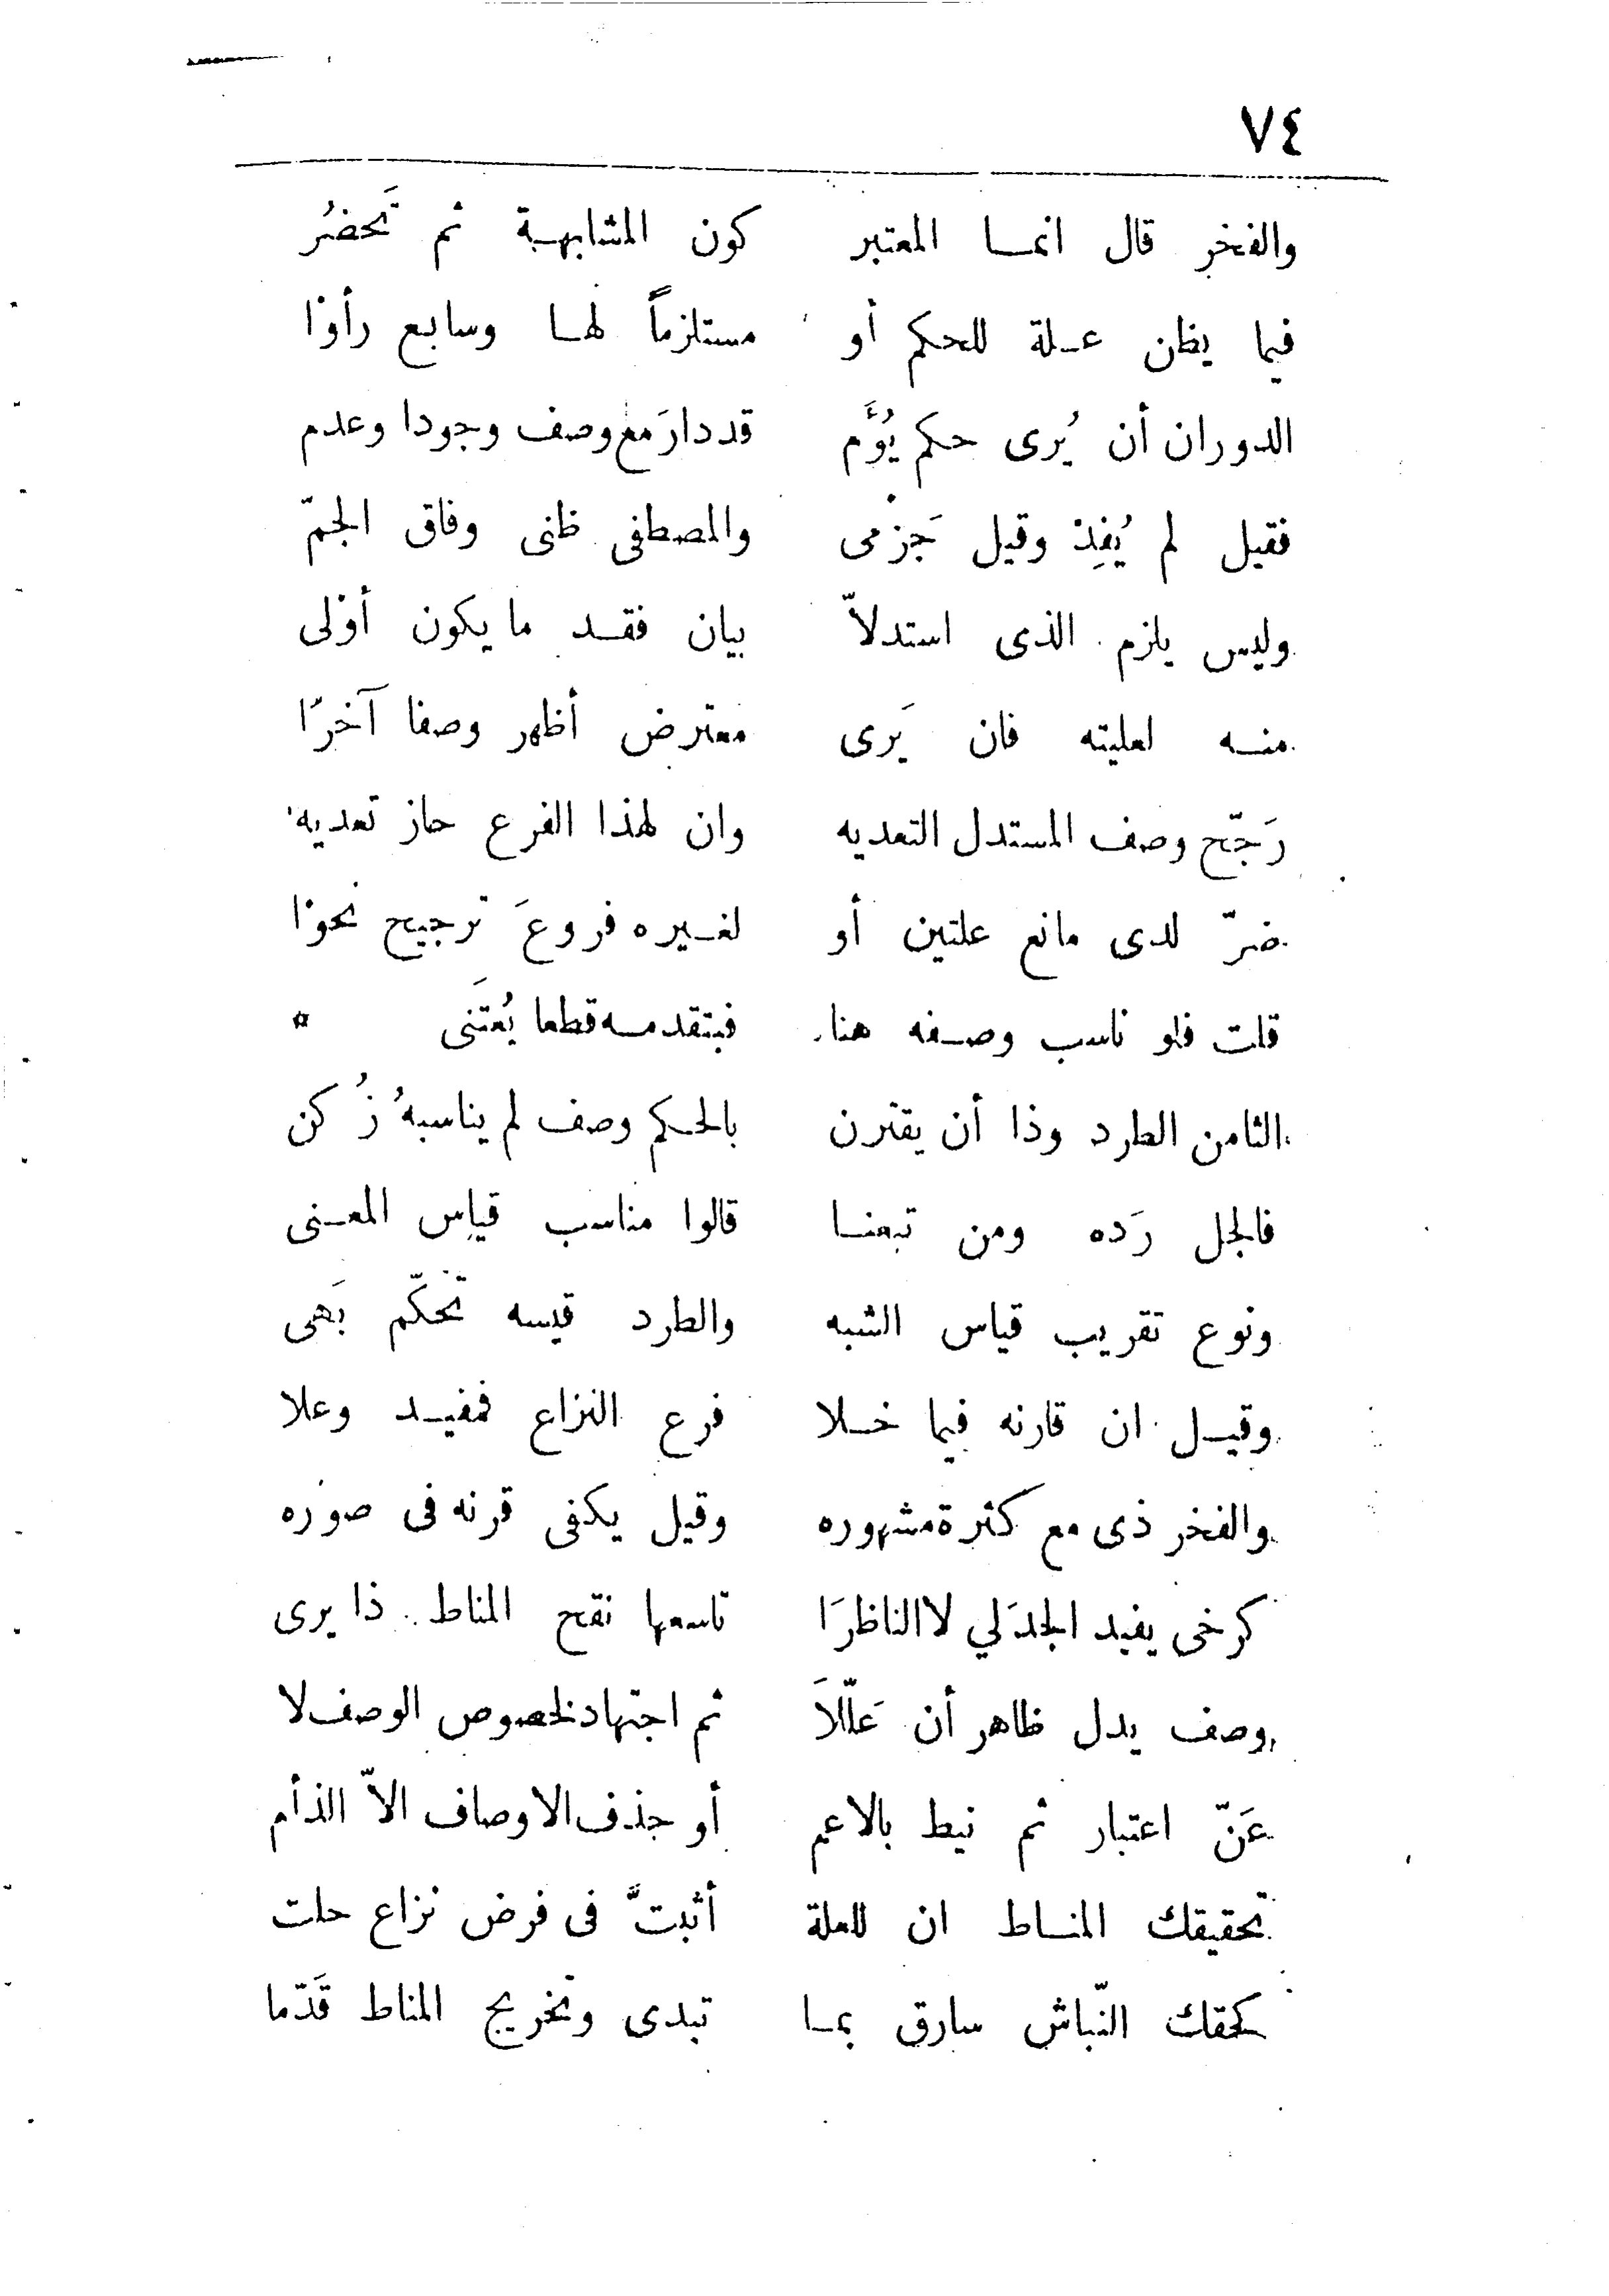 ٧٤
والفخر قال انما المعتبر كون المشابهة ثم تَحضُر
فيما يظن علة للحكم أو مستلزماً لها وسابع رأوْا
الدوران أن يُرى حكم يُؤَم قد دارَ مع وصف وجودا وعدم
فقيل لم يُفِدْ وقيل جَزْمى والمصطفى ظنى وفاق الجمّ
وليس يلزم الذى استدلاّ بيان فقد ما يكون أوْلى
منه لعليته فان يَرى معترض أظهر وصفا آخرَا
رَجّح وصف المستدل التعديه وان لهذا الفرع حاز تعديه
ضرّ لدى مانع علتين أو لغيره فروعَ ترجيح نحوْا
قلت فلو ناسب وصفه هنا فبتقدمه قطعا يُعتَنى *
الثامن الطرد وذا أن يقترن بالحكم وصف لم يناسبهُ زُكن
فالجل رَده ومن تبعنا قالوا مناسب قياس المعنى
ونوع تقريب قياس الشبه والطرد قيسه تحكّم بَهى
وقيل ان قارنه فيما خلا فرع النزاع فمفيد وعلا
والفخر ذى مع كثرة مشهوره وقيل يكفى قرنه فى صوره
كرخى يفيد الجدَلي لا الناظرَا تاسعها نقح المناط ذا يرى
وصف يدل ظاهر أن عَلّلاَ ثم اجتهاد لخصوص الوصف لا
عَنّ اعتبار ثم نيط بالاعم أو حذف الاوصاف الاّ الذ أم
تحقيقك المناط ان للعلة أثبتَّ فى فرض نزاع حلت
كحقك النّباش سارق بما تبدى وتخريج المناط قَدّما